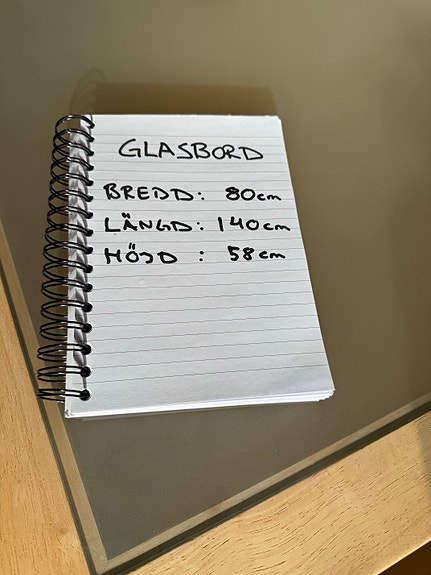 GLASBORD
BREDD: 80cm
LÄNGD: 140cm
HÖJD : 58cm